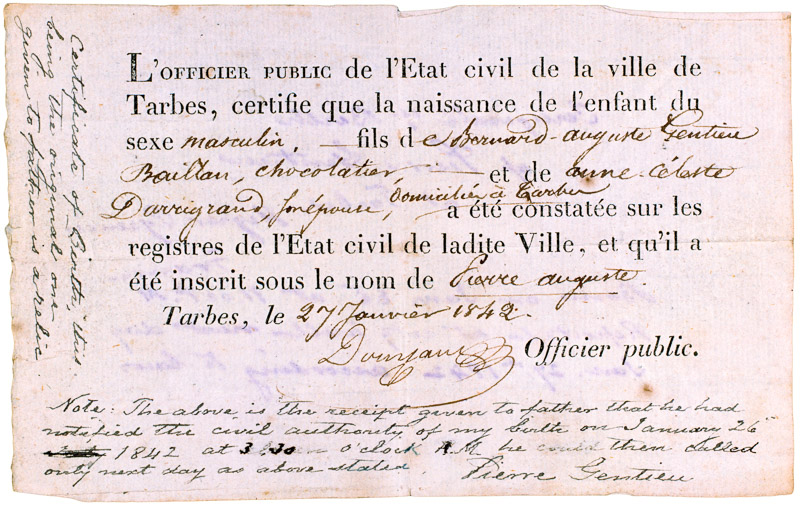 L'OFFICIER PUBLIC de l'Etat civil de la ville de
Tarbes, certifie que la naissance de l'enfant du
sexe masculin. — fils de Bernard-auguste Gentieu
Baillan, chocolatier, — et de anne-céleste
Darrigrand, son épouse, domiciliés à Tarbes a été constatée sur les
registres de l'Etat civil de ladite Ville, et qu'il a
été inscrit sous le nom de Pierre auguste.
Tarbes, le 27 Janvier 1842.
Officier public.
Note: The above is the receipt given to father that he had
notified the civil authority of my birth on January 26
1842 at 3.30 o'clock A.M. he could then called
only next day as above stated. Pierre Gentieu
Certificate of Birth, this
being the original one
given to father is a relic.